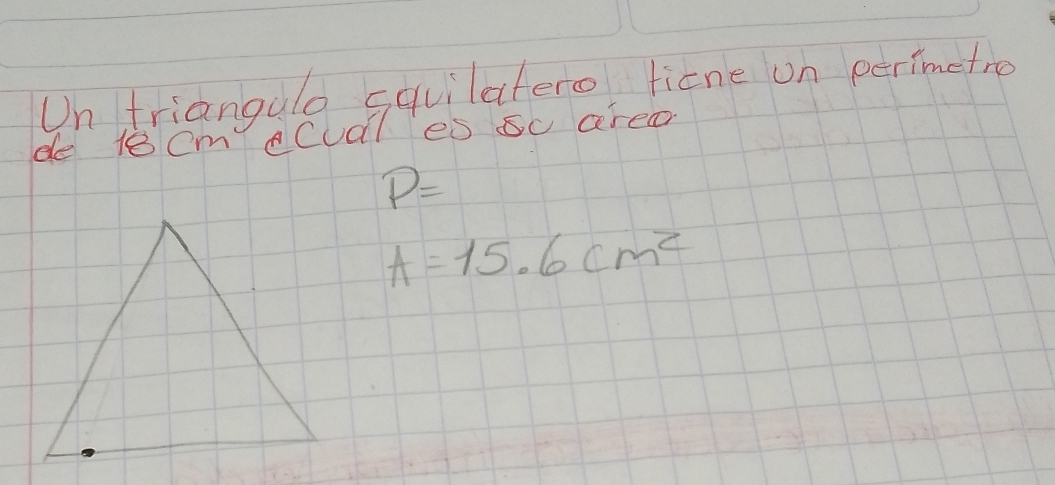 Un triangulo equilatero tiene un perimetro
de 18 cm ¿Cual es su area
P=
A = 15.6 cm²